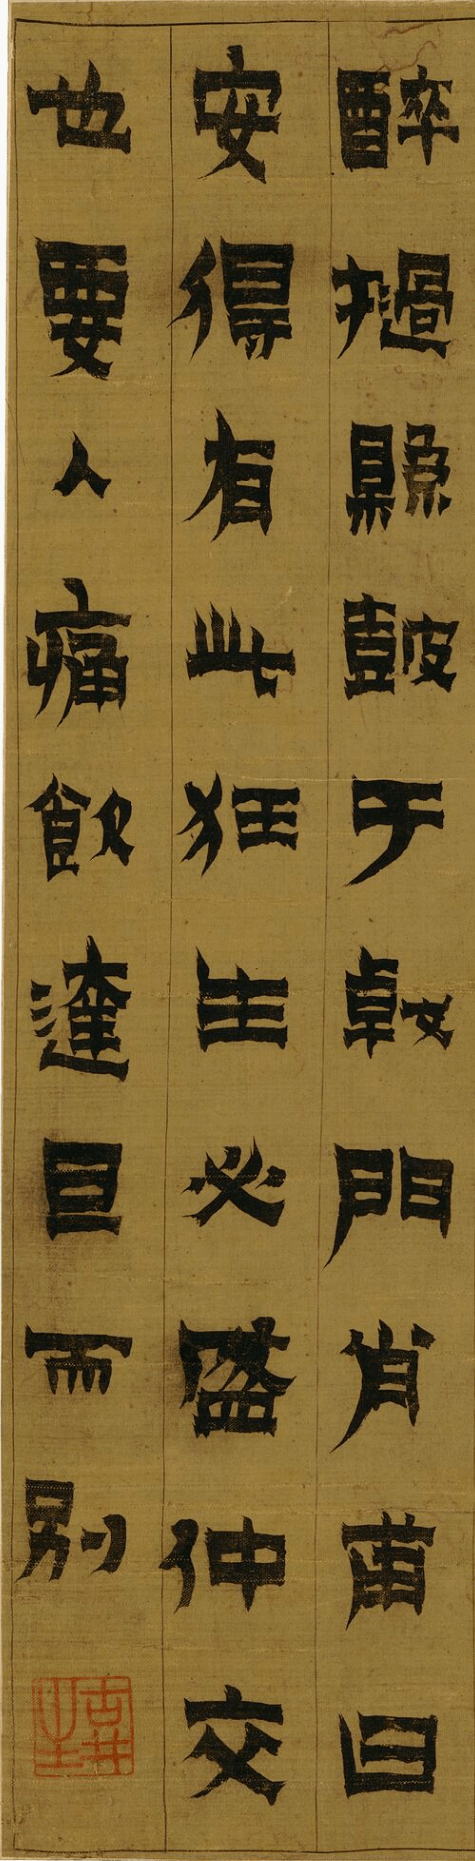 醉撾縣皷于戟門肖甫曰
安得有此狂生必盛仲交
也要入痛飲達旦而別